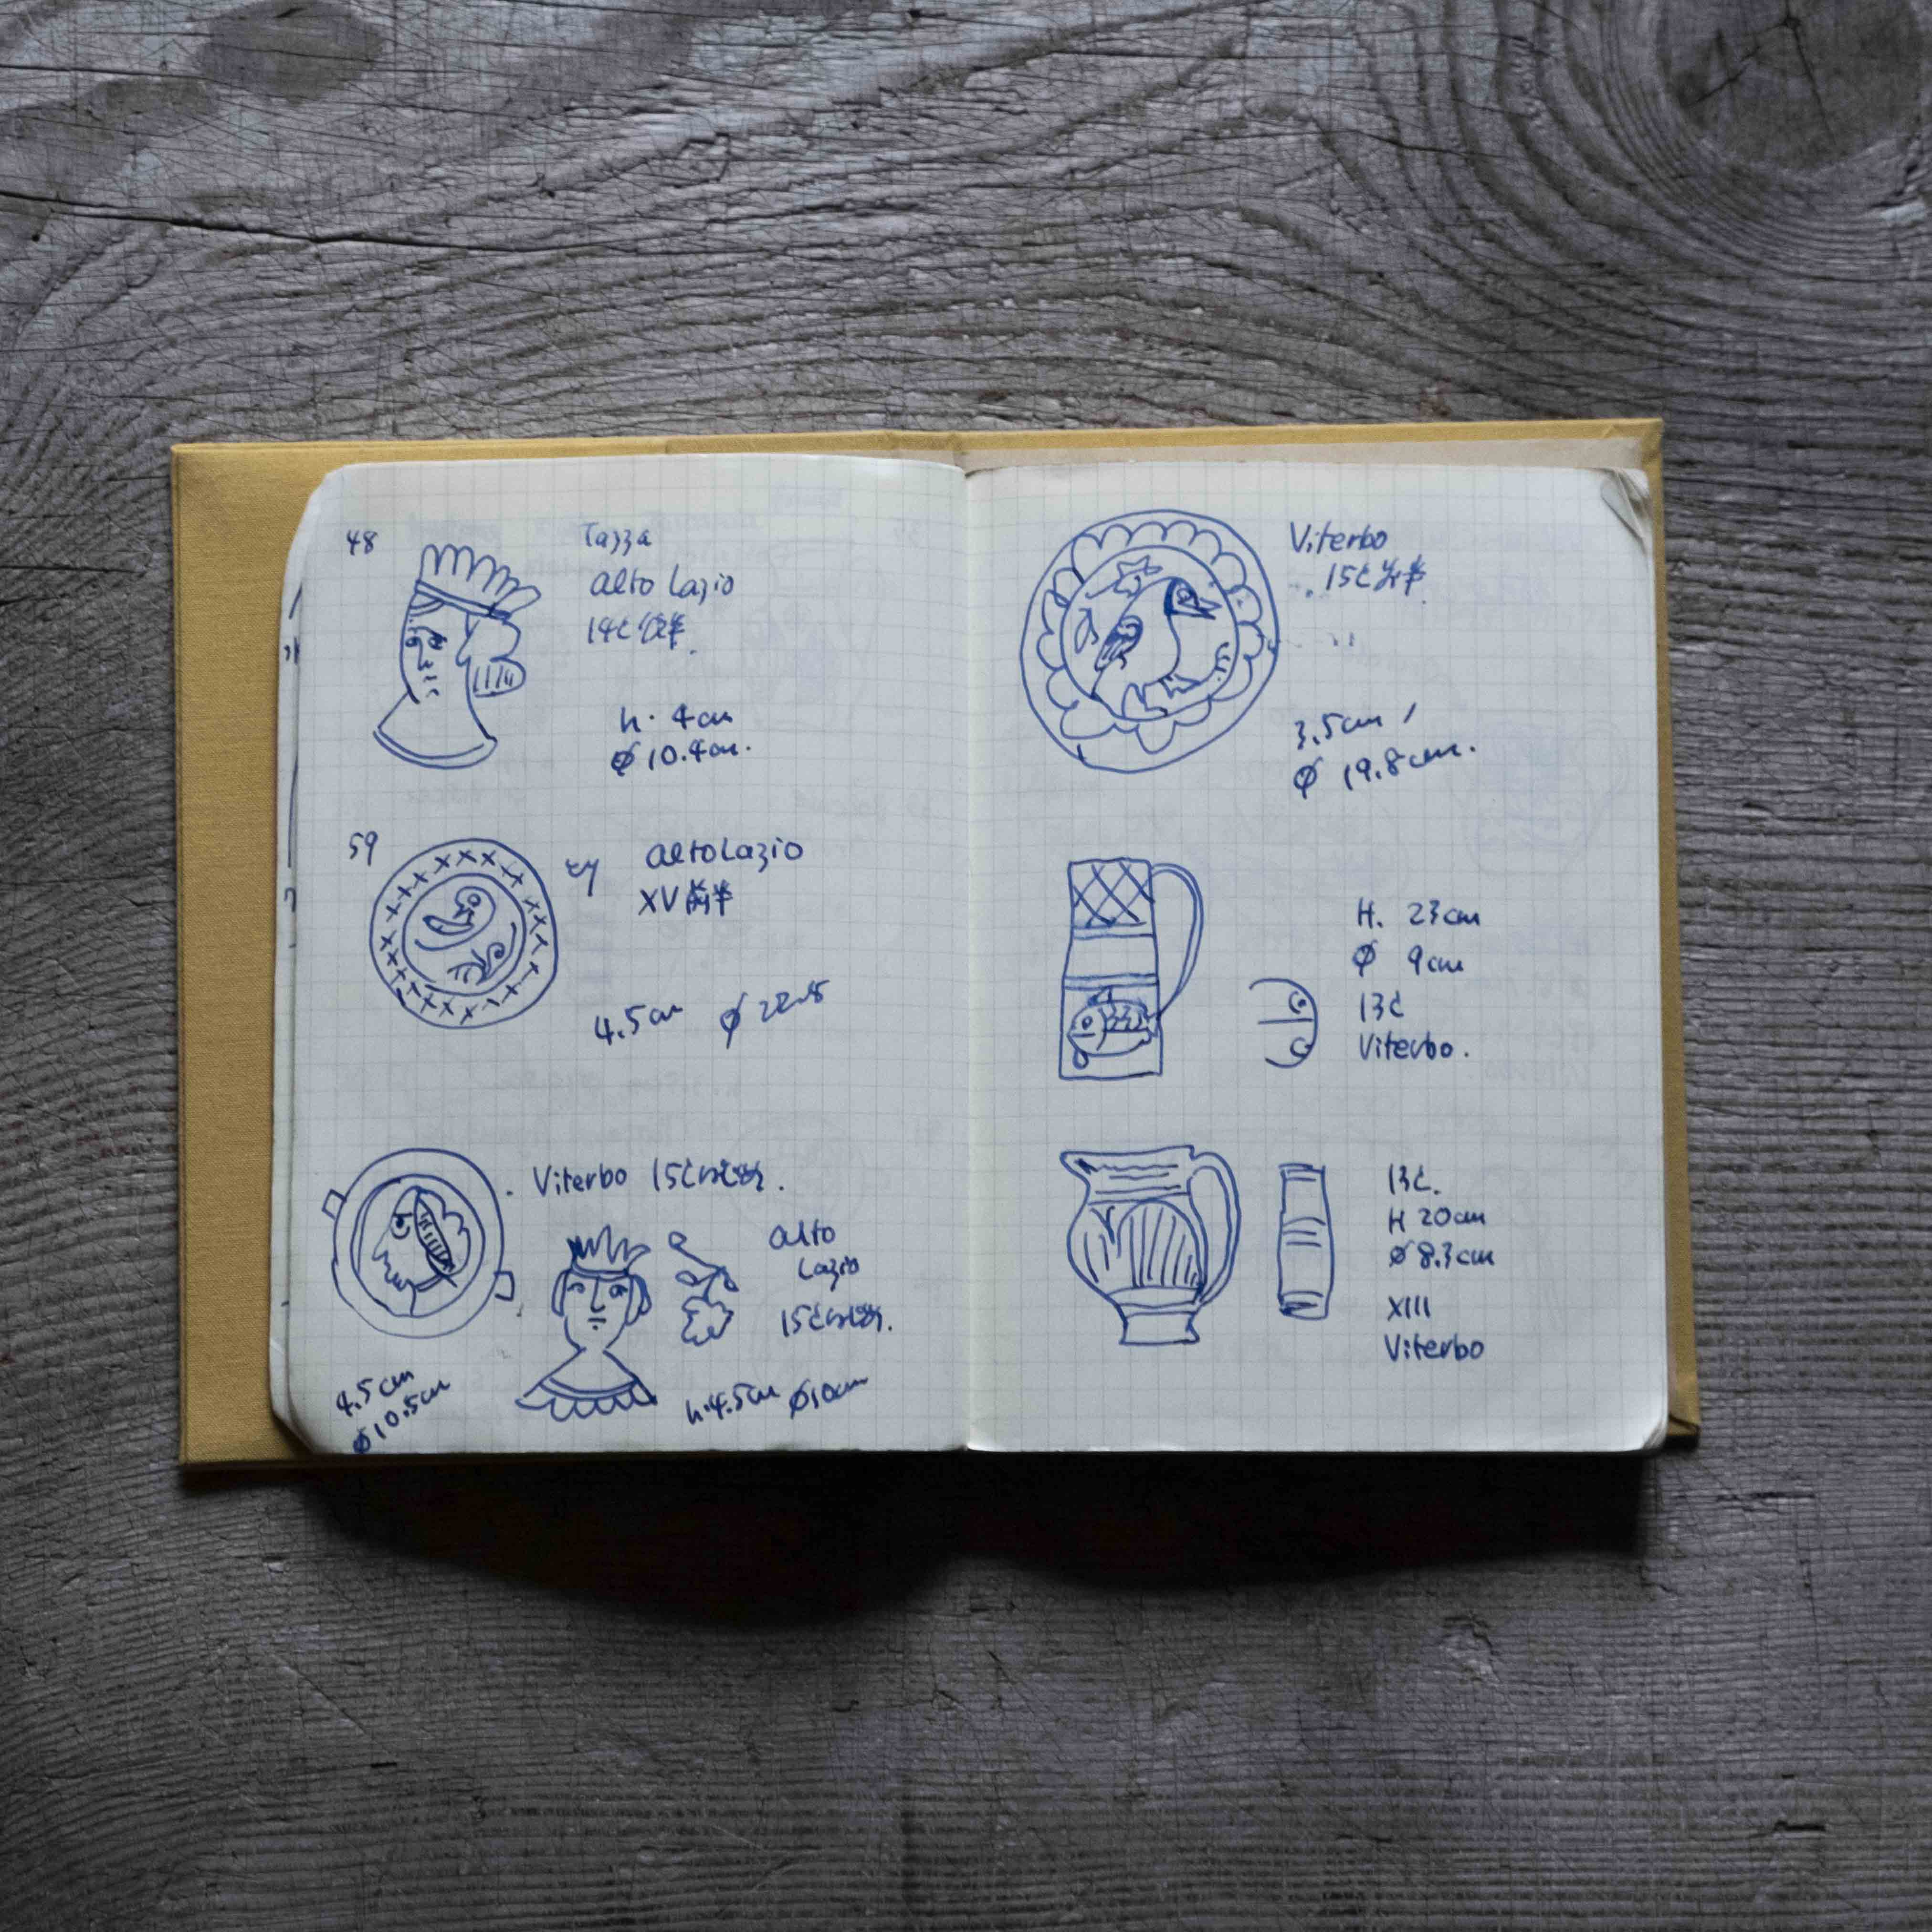 48
Tazza
alto Lazio
14C 後半.
h. 4cm
φ10.4cm.
59
alto Lazio
XV前半
4.5cm φ22.5
Viterbo 15C
alto
Lazio
15C
4.5cm
φ10.5cm
h.4.5cm φ10cm
Viterbo
15C 前半
3.5cm
φ 19.8cm.
H. 23cm
φ 9cm
13C
Viterbo.
13C.
H 20cm
φ8.3cm
XIII
Viterbo